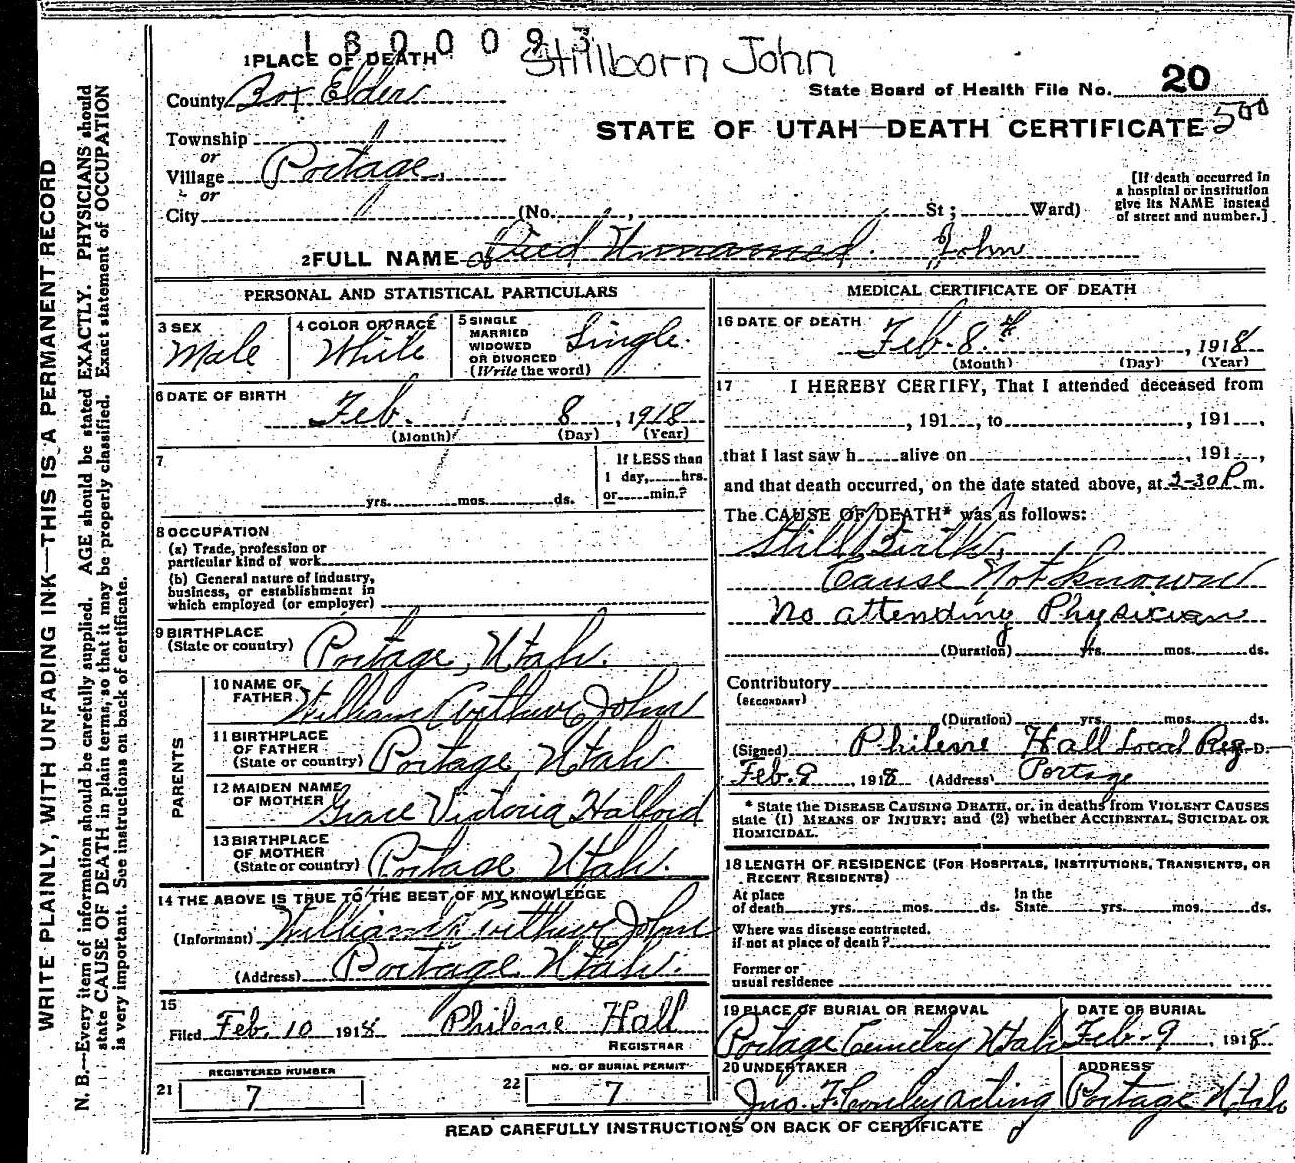 1800093
Stillborn John
1 PLACE OF DEATH
County Box Elder
State Board of Health File No. 20
500
STATE OF UTAH—DEATH CERTIFICATE
Township
or
Village Portage,
or
City (No. , St; Ward)
[If death occurred in a hospital or institution give its NAME instead of street and number.]
2 FULL NAME Died Unnamed. John
PERSONAL AND STATISTICAL PARTICULARS
3 SEX Male
4 COLOR OR RACE White
5 SINGLE MARRIED WIDOWED OR DIVORCED (Write the word) Single.
6 DATE OF BIRTH Feb. 8, 1918
(Month) (Day) (Year)
7 yrs. mos. ds.
If LESS than 1 day, hrs. or min.?
8 OCCUPATION
(a) Trade, profession or particular kind of work
(b) General nature of industry, business, or establishment in which employed (or employer)
9 BIRTHPLACE (State or country) Portage, Utah.
PARENTS
10 NAME OF FATHER William Arthur John
11 BIRTHPLACE OF FATHER (State or country) Portage, Utah.
12 MAIDEN NAME OF MOTHER Grace Victoria Halford
13 BIRTHPLACE OF MOTHER (State or country) Portage Utah.
14 THE ABOVE IS TRUE TO THE BEST OF MY KNOWLEDGE
(Informant) William Arthur John
(Address) Portage Utah.
15 Filed Feb. 10 1918 Philene Hall
REGISTRAR
21 REGISTERED NUMBER 7
22 NO. OF BURIAL PERMIT 7
MEDICAL CERTIFICATE OF DEATH
16 DATE OF DEATH Feb. 8.th, 1918
(Month) (Day) (Year)
17 I HEREBY CERTIFY, That I attended deceased from
, 191 , to , 191 ,
that I last saw h alive on , 191 ,
and that death occurred, on the date stated above, at 2-30 P. m.
The CAUSE OF DEATH* was as follows:
Still Birth,
Cause Not Known
No attending Physician
(Duration) yrs. mos. ds.
Contributory
(SECONDARY)
(Duration) yrs. mos. ds.
(Signed) Philene Hall Local Reg. D.
Feb. 9, 1918 (Address) Portage
* State the DISEASE CAUSING DEATH, or, in deaths from VIOLENT CAUSES
state (1) MEANS OF INJURY; and (2) whether ACCIDENTAL, SUICIDAL OR
HOMICIDAL.
18 LENGTH OF RESIDENCE (FOR HOSPITALS, INSTITUTIONS, TRANSIENTS, OR
RECENT RESIDENTS)
At place of death yrs. mos. ds. In the State yrs. mos. ds.
Where was disease contracted, if not at place of death?
Former or usual residence
19 PLACE OF BURIAL OR REMOVAL Portage Cemetry Utah
DATE OF BURIAL Feb. 9, 1918
20 UNDERTAKER Jno. F. Conley acting
ADDRESS Portage Utah
READ CAREFULLY INSTRUCTIONS ON BACK OF CERTIFICATE
WRITE PLAINLY, WITH UNFADING INK—THIS IS A PERMANENT RECORD
N. B.—Every item of information should be carefully supplied. AGE should be stated EXACTLY. PHYSICIANS should
state CAUSE OF DEATH in plain terms, so that it may be properly classified. Exact statement of OCCUPATION
is very important. See instructions on back of certificate.